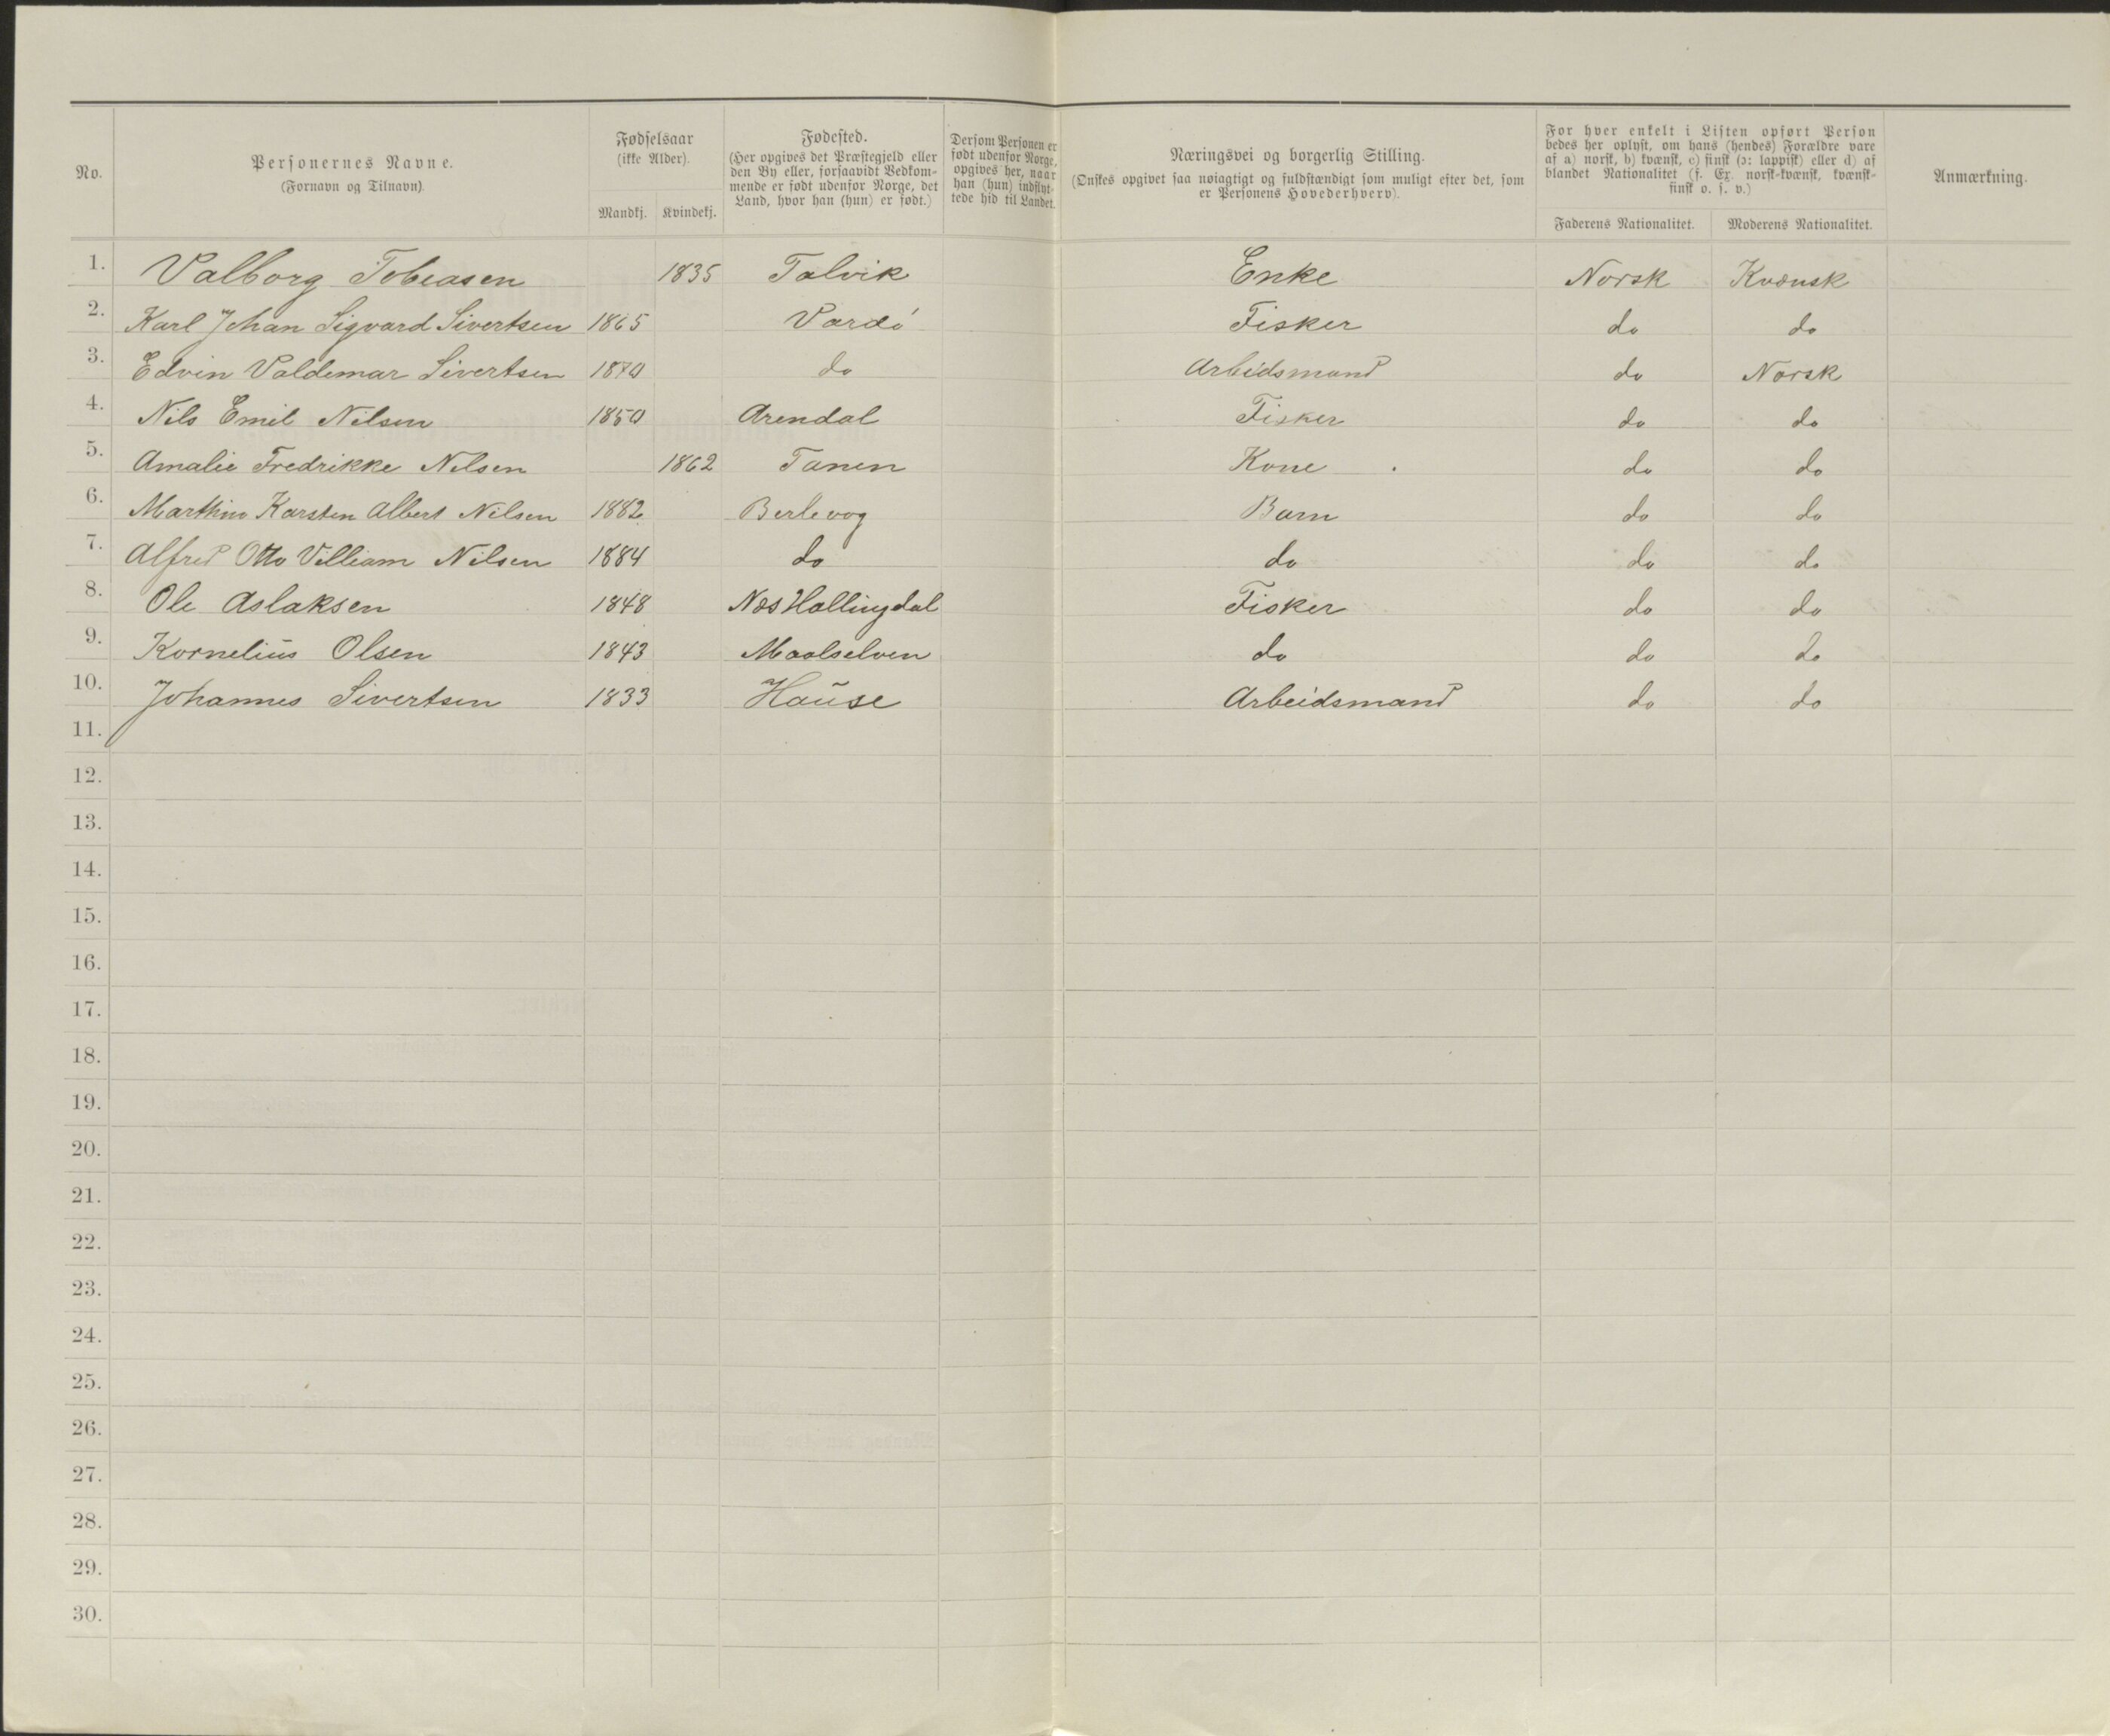 No.
Personernes Navne.
(Fornavn og Tilnavn).
Fødselsaar
(ikke Alder).
Mandkj. Kvindekj.
Fødested.
(Her opgives det Præstegjeld eller
den By eller, forsaavidt Vedkom-
mende er født udenfor Norge, det
Land, hvor han (hun) er født.)
Dersom Personen er
født udenfor Norge,
opgives her, naar
han (hun) indflyt-
tede hid til Landet.
Næringsvei og borgerlig Stilling.
(Ønskes opgivet saa nøiagtigt og fuldstændigt som muligt efter det, som
er Personens Hovederhverv).
For hver enkelt i Listen opført Person
bedes her oplyst, om hans (hendes) Forældre vare
af a) norsk, b) kvænsk, c) finsk (ɔ: lappisk) eller d) af
blandet Nationalitet (f. Ex. norsk-kvænsk, kvænsk-
finsk o. s. v.)
Faderens Nationalitet. Moderens Nationalitet.
Anmærkning.
1. Valborg Tobiasen 1835 Talvik Enke Norsk Kvænsk
2. Karl Johan Sigvard Sivertsen 1865 Vardö Fisker do do
3. Edvin Valdemar Sivertsen 1870 do Arbidsmand do Norsk
4. Nils Emil Nilsen 1850 Arendal Fisker do do
5. Amalie Fredrikke Nilsen 1862 Tanen Kone do do
6. Marthin Karsten Albert Nilsen 1882 Berlevog Barn do do
7. Alfred Otto Villiam Nilsen 1884 do do do do
8. Ole Aslaksen 1848 Næs Hallingdal Fisker do do
9. Kornelius Olsen 1843 Maalselven do do do
10. Johannes Sivertsen 1833 Hause Arbeidsmand do do
11.
12.
13.
14.
15.
16.
17.
18.
19.
20.
21.
22.
23.
24.
25.
26.
27.
28.
29.
30.